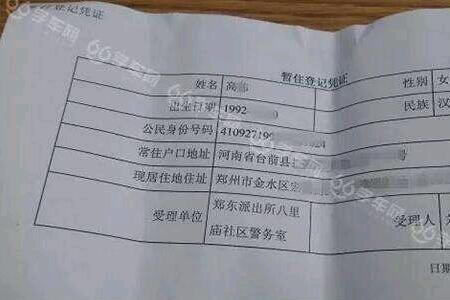 登记凭证
暂住登记凭证
姓名 高 性别 女
出生日期 1992 民族 汉
公民身份号码 41092719
常住户口地址 河南省台前县 号
现居住地住址 郑州市金水区
受理单位 郑东派出所八里
庙社区警务室 受理人
日期
66学车网
66学车网
66学车网
66学车网